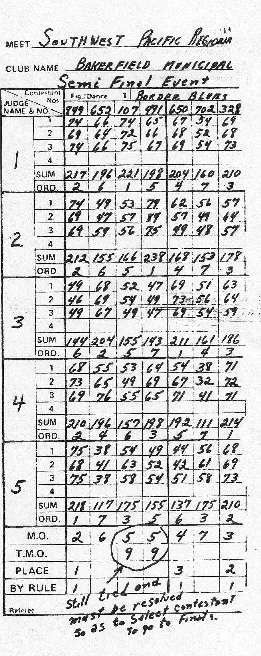 MEET SOUTHWEST PACIFIC REGIONAL
CLUB NAME BAKERFIELD MUNICIPAL
Semi Final Event
Contestant Fig. Dance BORDER BLUES
JUDGE NAME & NO. Nos 849 652 107 491 650 702 328
1
1 74 66 74 65 67 34 69
2 69 64 72 66 68 52 68
3 74 66 75 67 69 54 73
4
SUM 217 196 221 198 204 160 210
ORD. 2 6 1 5 4 7 3
2
1 74 49 53 74 62 56 57
2 69 47 57 89 57 49 64
3 69 59 56 75 49 48 57
4
SUM 212 155 166 238 168 153 178
ORD. 2 6 5 1 4 7 3
3
1 49 68 52 47 69 51 63
2 46 69 54 49 73 56 64
3 49 67 49 47 69 54 59
4
SUM 144 204 155 143 211 161 186
ORD. 6 2 5 7 1 4 3
4
1 68 55 53 64 54 38 71
2 73 65 49 69 67 32 72
3 69 76 55 65 71 41 71
4
SUM 210 196 157 198 192 111 214
ORD. 2 4 6 3 5 7 1
5
1 75 38 54 49 44 56 68
2 68 41 63 52 42 61 69
3 75 38 58 54 51 58 73
4
SUM 218 117 175 155 137 175 210
ORD. 1 7 3 5 6 3 2
M.O. 2 6 5 5 4 7 3
T.M.O. 9 9
PLACE 1 3 2
BY RULE 1 1 1
Referee
Still tied and
must be resolved
so as to select contestant
to go to Finals.